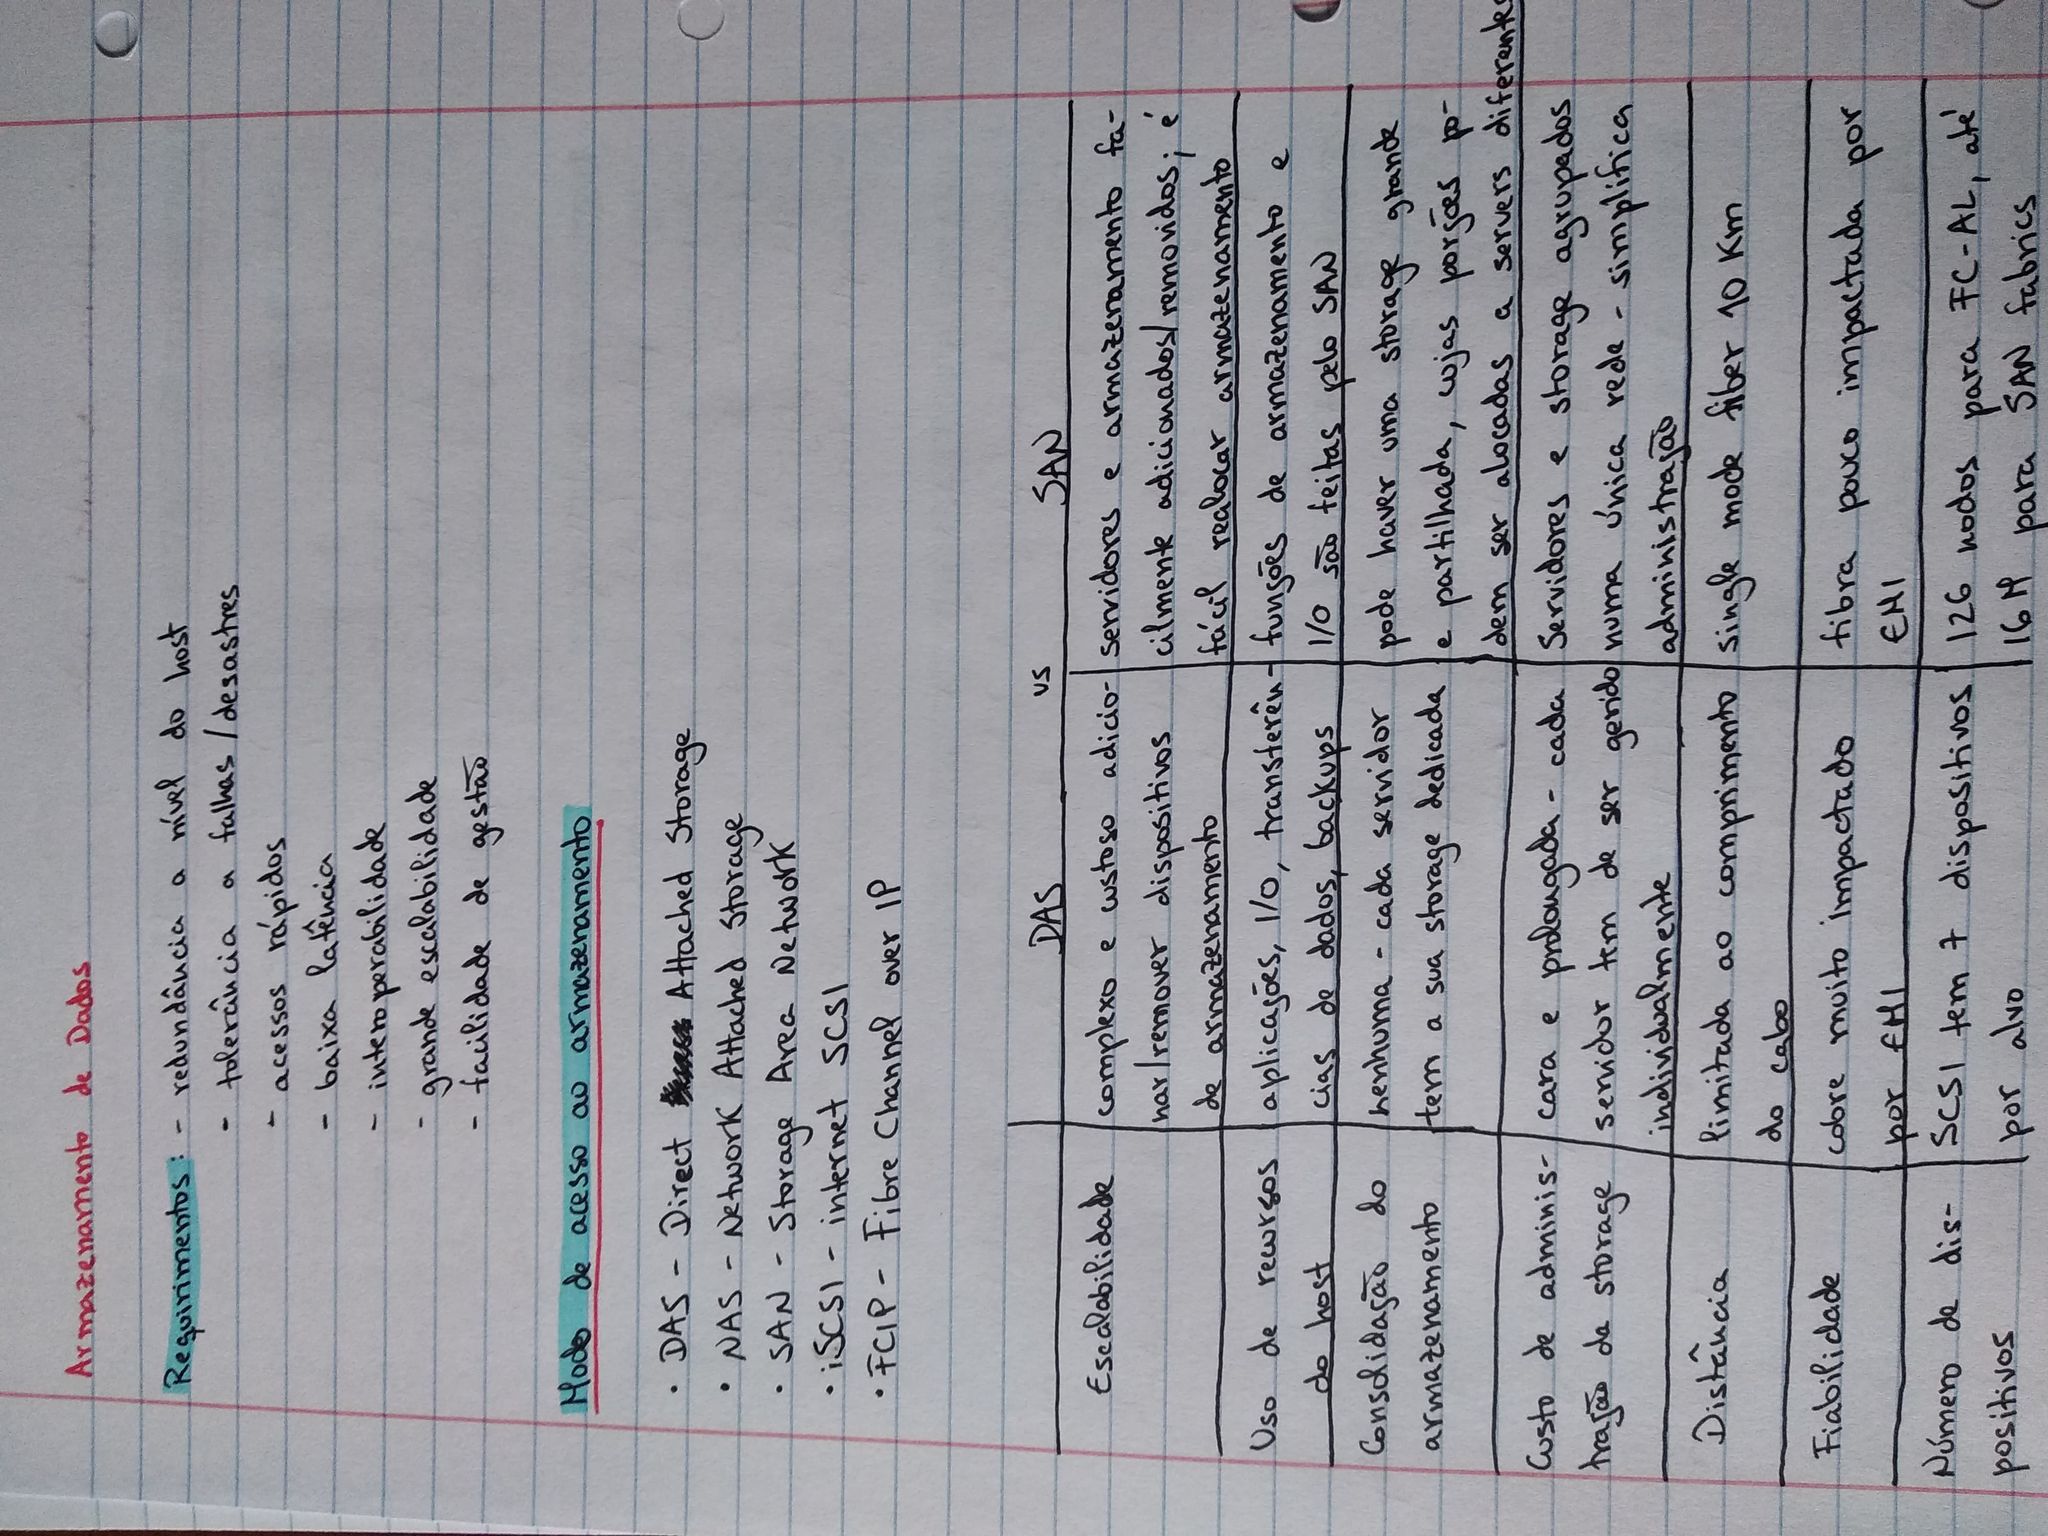 Armazenamento de Dados
Requirimentos: - redundância a nível do host
- tolerância a falhas/desastres
- acessos rápidos
- baixa latência
- interoperabilidade
- grande escalabilidade
- facilidade de gestão
Modo de acesso ao armazenamento
• DAS - Direct Attached Storage
• NAS - Network Attached Storage
• SAN - Storage Area Network
• iSCSI - internet SCSI
• FCIP - Fibre Channel over IP
DAS vs SAN
Escalabilidade
complexo e custoso adicio-
nar/remover dispositivos
de armazenamento
servidores e armazenamento fa-
cilmente adicionados/removidos; é
fácil realocar armazenamento
Uso de recursos
do host
aplicações, I/O, transferên-
cias de dados, backups
funções de armazenamento e
I/O são feitas pelo SAN
Consolidação do
armazenamento
nenhuma - cada servidor
tem a sua storage dedicada
pode haver uma storage grande
e partilhada, cujas porções po-
dem ser alocadas a servers diferentes
Custo de adminis-
tração da storage
cara e prolongada - cada
servidor tem de ser gerido
individualmente
Servidores e storage agrupados
numa única rede - simplifica
administração
Distância
limitada ao comprimento
do cabo
single mode fiber 10 Km
Fiabilidade
cobre muito impactado
por EMI
fibra pouco impactada por
EMI
Número de dis-
positivos
SCSI tem 7 dispositivos
por alvo
126 nodos para FC-AL, até
16 M para SAN fabrics